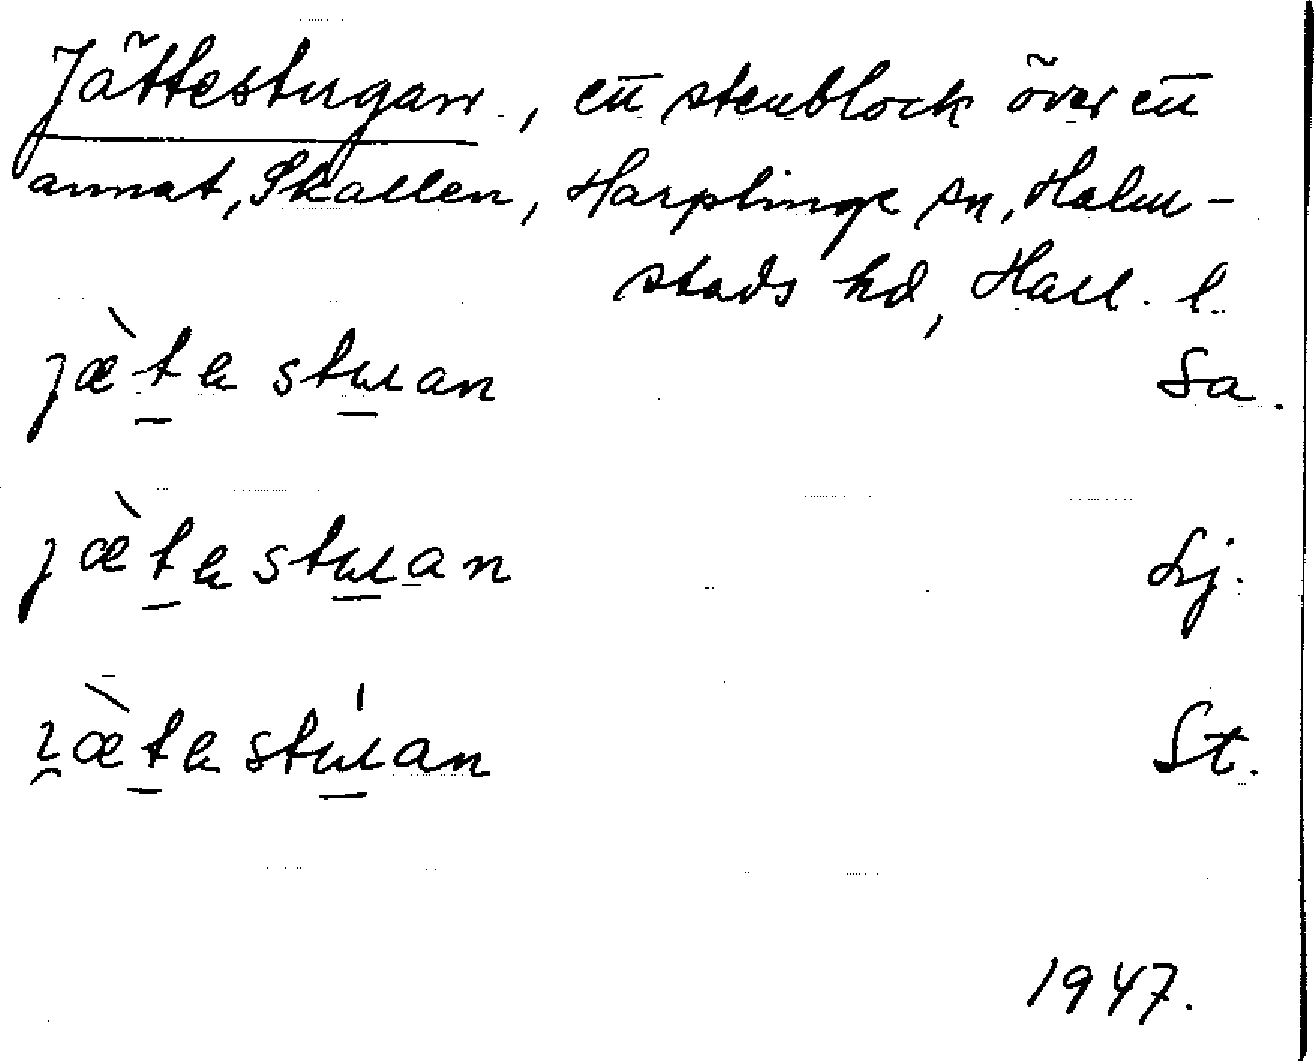 Jättestugan, ett stenblock över ett
annat, Skallen, Harplinge sn, Halm-
stads hd, Hall. l.
jæ̀te stuan Sa.
jæ̀te stuan Lj.
jæ̀te stúan St.
1947.